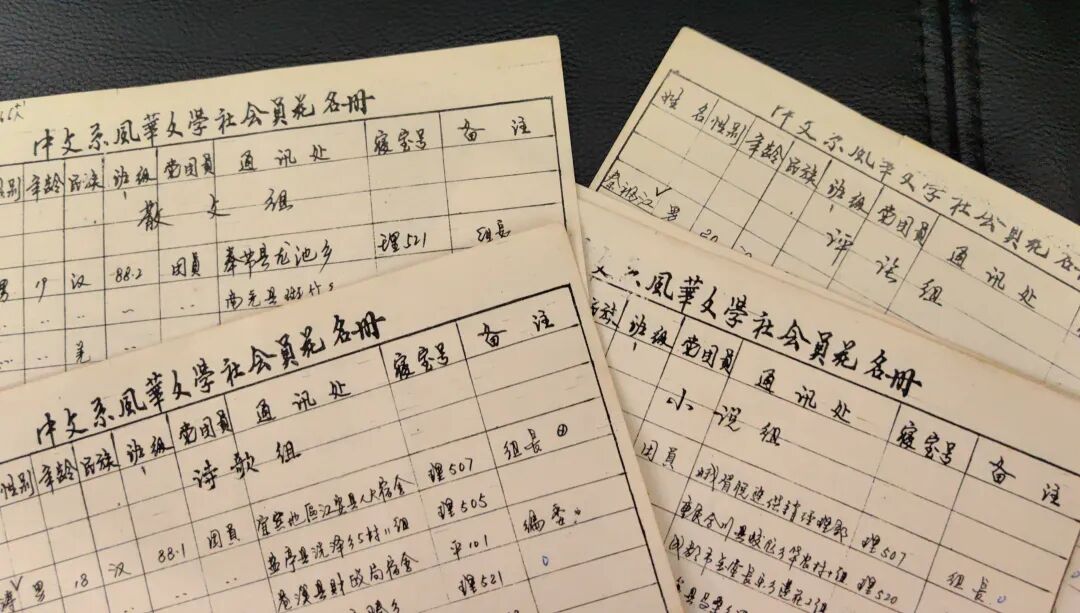 中文系風華文學社会員花名册
性别 年龄 民族 班级 党团员 通讯处 寝室号 备注
散文组
男 19 汉 88.2 团员 奉节县龙池乡 理521 组长
羌
中文系風華文學社会員花名册
姓名 性别 年龄 民族 班级 党团员 通讯处
评论组
男
中文系風華文學社会員花名册
性别 年龄 民族 班级 党团员 通讯处 寝室号 备注
诗歌组
男 18 汉 88.1 团员 宜宾地區江安县人大宿舍 理507 组长
盐亭县洗泽乡5村11组 理505 编委
苍溪县财政局宿舍 平101
理521
文系風華文學社会員花名册
民族 班级 党团员 通讯处 寝室号 备注
小说组
团员 理507 组长
理520